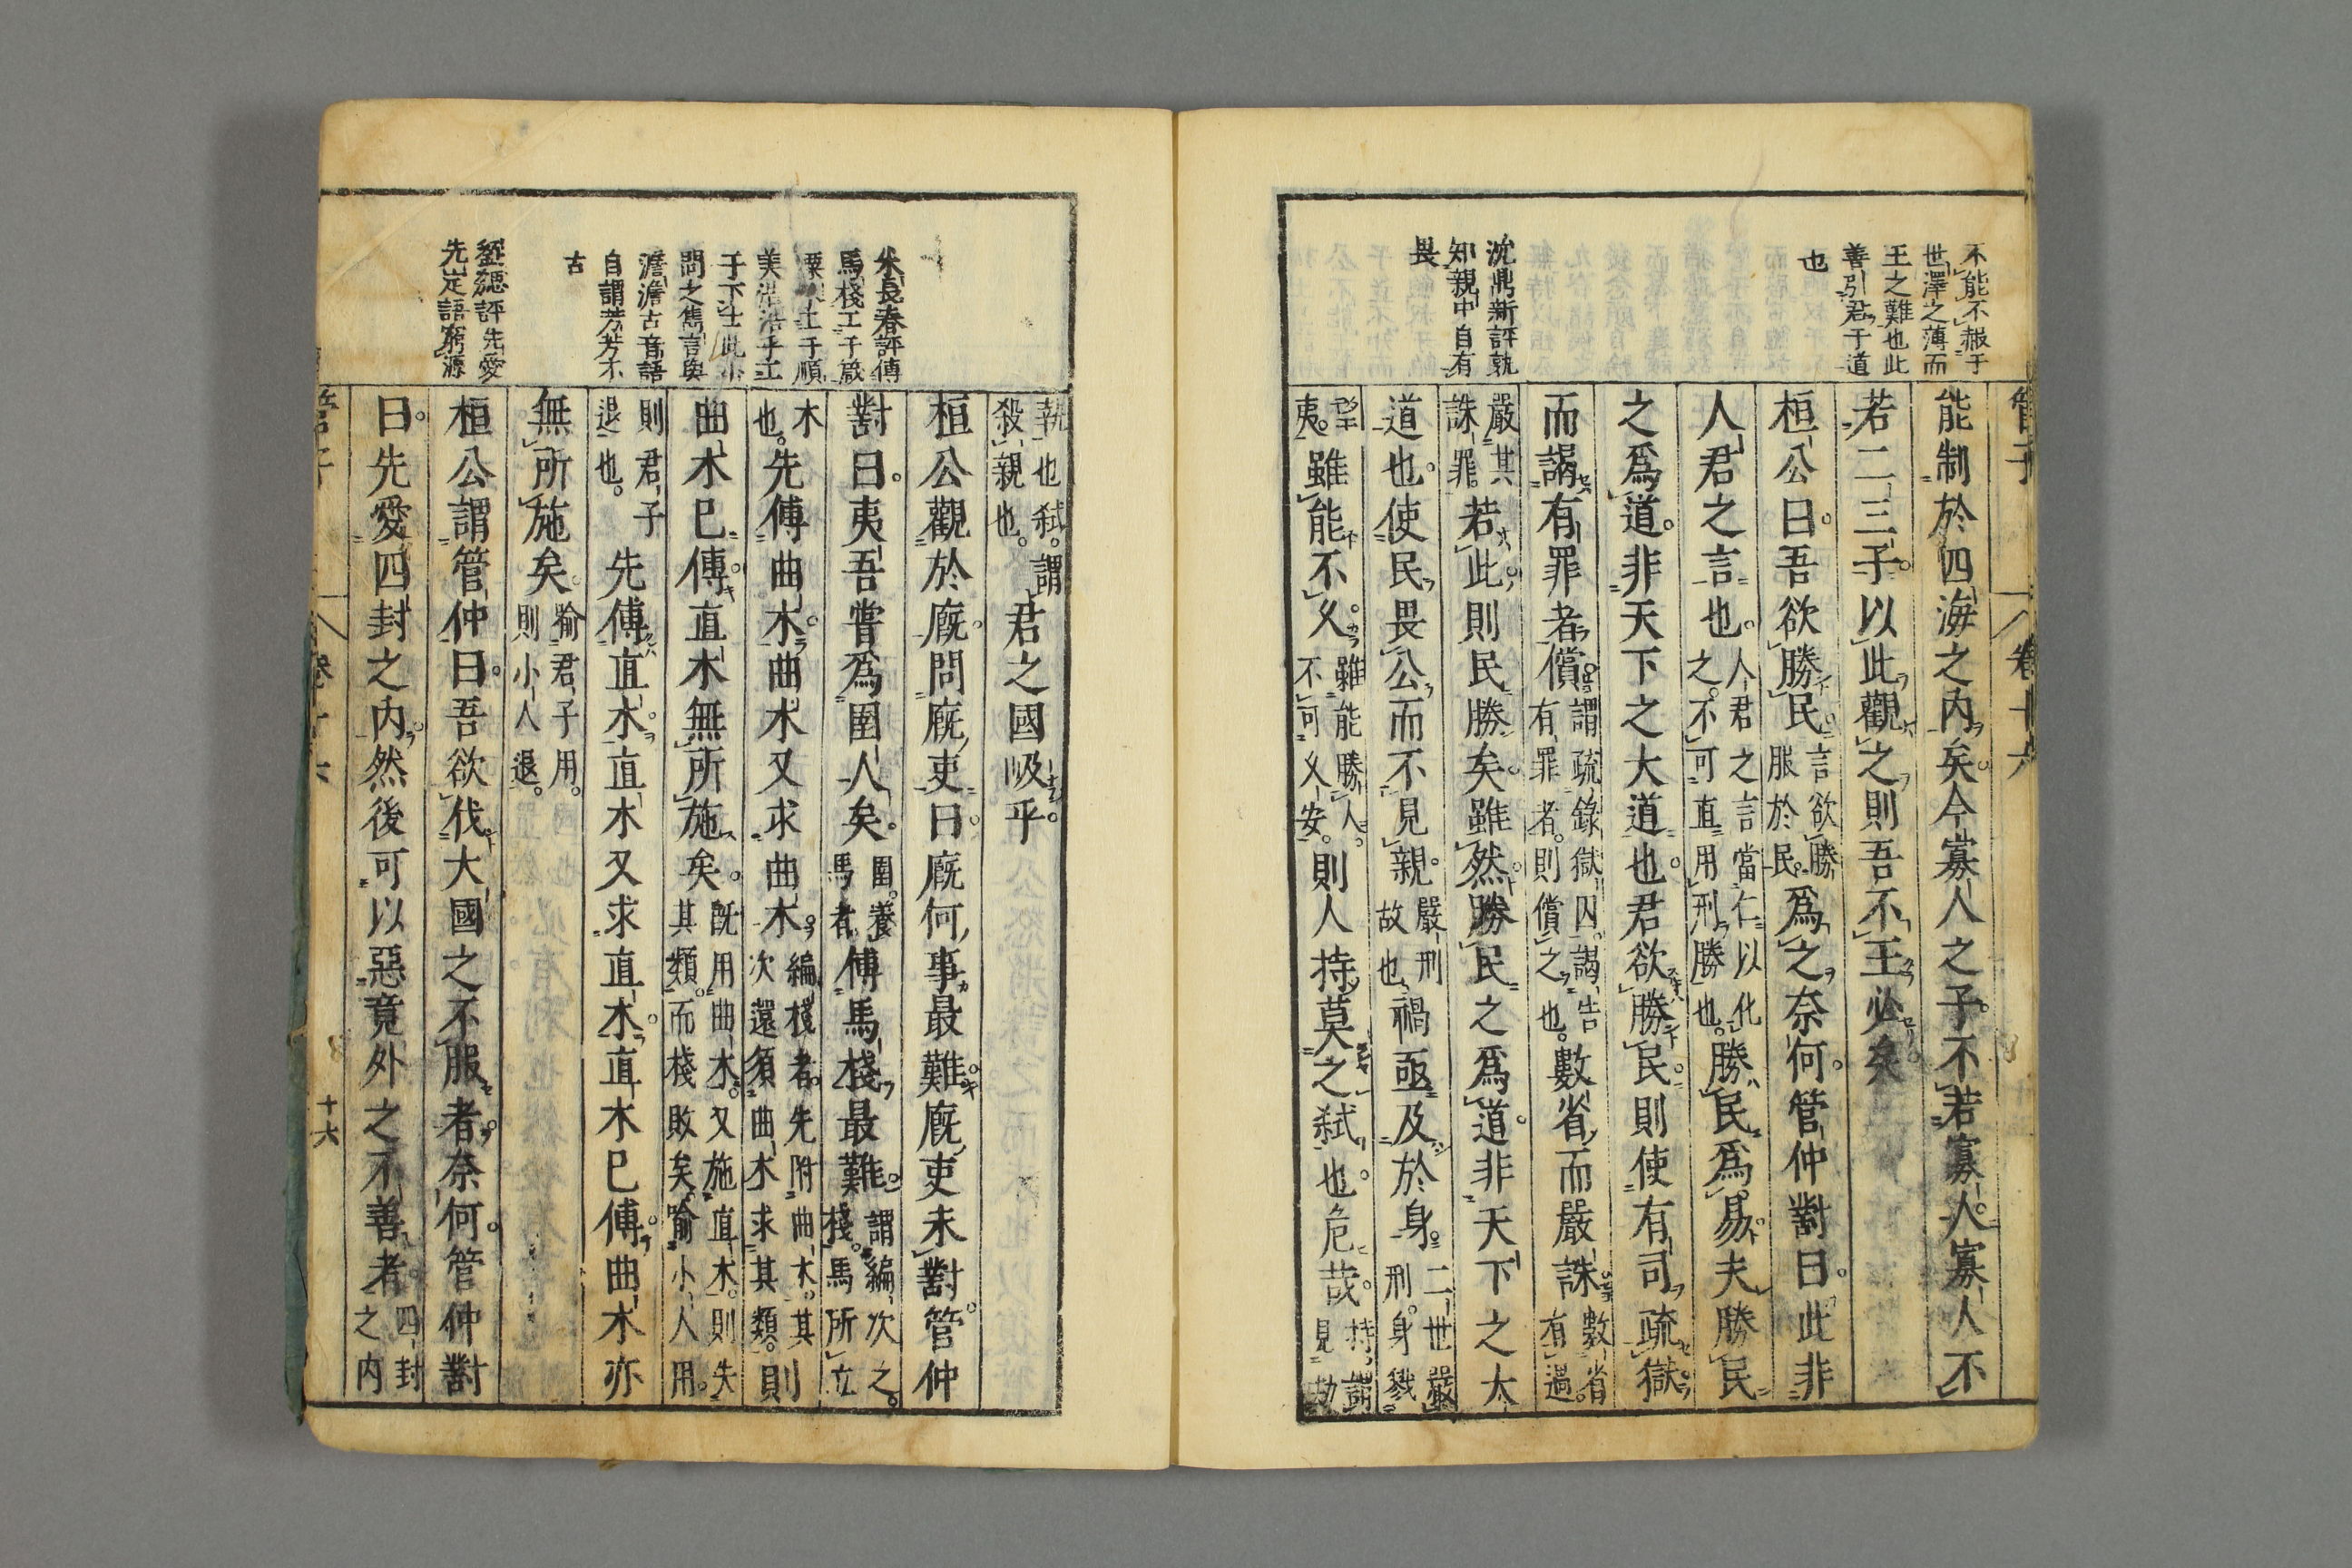 不能不報于
世澤之薄而
王之難也此
善引君于道
也
沈鼎新評孰
知親中自有
畏
管子
卷十六
能制於四海之内矣今寡人之子不若寡人寡人不
若二三子以此觀之則吾不王必矣
桓公曰吾欲勝民言欲勝服於民爲之奈何管仲對曰此非
人君之言也人君之言當仁以化之不可直用刑勝也勝民爲易夫勝民
之爲道非天下之大道也君欲勝民則使有司疏獄
而謁有罪者償謂疏錄獄囚謁告有罪者則償之也數省而嚴誅數省有過
嚴其誅罪若此則民勝矣雖然勝民之爲道非天下之大
道也使民畏公而不見親嚴刑故也禍亟及於身二世嚴刑身戮
望夷雖能不乂雖能勝人不可乂安則人持莫之弒也危哉持謂見劫
朱長春評傅
馬棧工于箴
工于順
美
于下士此小
問之雋言與
澹澹古音語
自謂芳芳不
古
先愛
先定語窮源
執也弒謂殺親也君之國岋乎
桓公觀於廐問廐吏曰廐何事最難廐吏未對管仲
對曰夷吾嘗爲圉人矣圉養馬者傅馬棧最難謂編次之棧馬所立
木也先傅曲木曲木又求曲木編棧者先附曲木其次還須曲木求其類則
曲木已傅直木無所施矣既用曲木又施直木則失其類而棧敗矣喻小人用
則君子退也先傅直木直木又求直木直木已傅曲木亦
無所施矣喻君子用則小人退
桓公謂管仲曰吾欲伐大國之不服者奈何管仲對
曰先愛四封之内然後可以惡竟外之不善者四封之内
管子
卷十六
十六